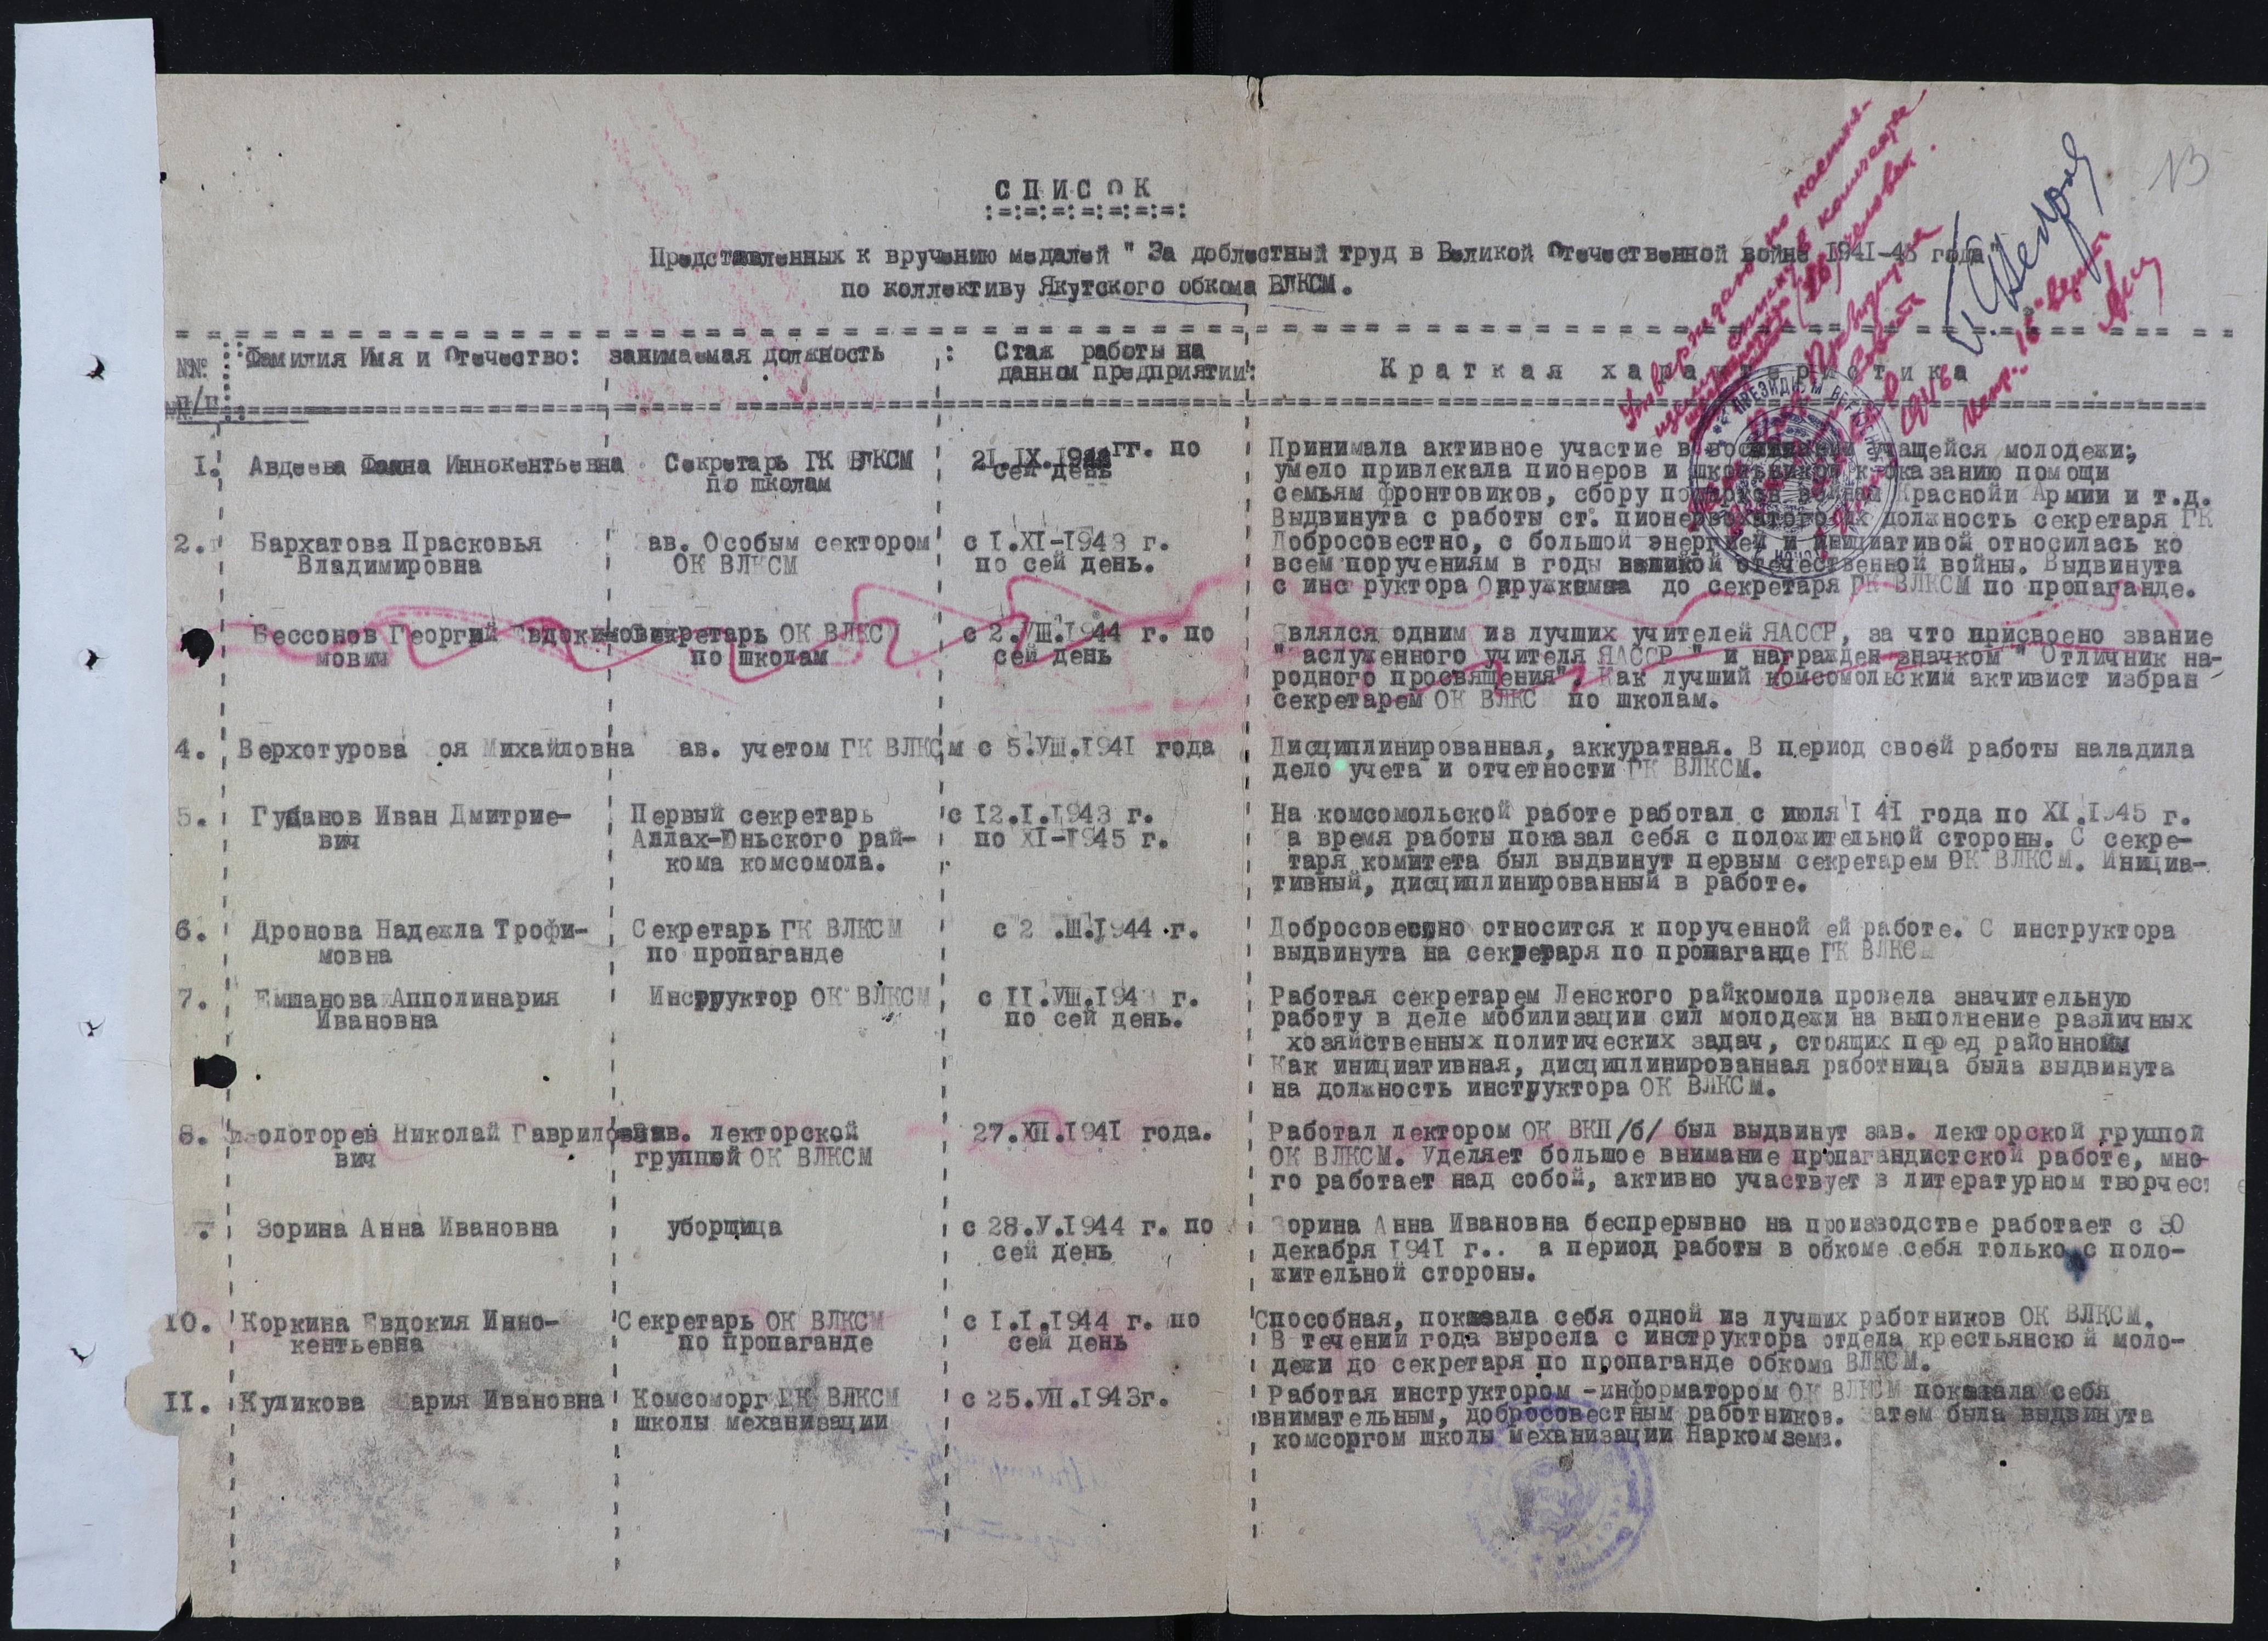 СПИСОК
:=:=:=:=:=:=:=:
Представленных к вручению медалей " За доблестный труд в Великой Отечественной войне 1941-45 года"
по коллективу Якутского обкома ВЛКСМ.
№№ п/п
Фамилия Имя и Отчество:
занимаемая должность
:
Стаж работы на
данном предприятии:
Краткая характеристика
1.
Авдеева Фаина Иннокентьевна
Секретарь ГК ВЛКСМ
по школам
21.IX. гг. по
сей день
Принимала активное участие в воспитании учащейся молодежи;
умело привлекала пионеров и школьников к оказанию помощи
семьям фронтовиков, сбору подарков воинам Краснойи Армии и т.д.
Выдвинута с работы ст. пионервожатого на должность секретаря ГК
2.
Бархатова Прасковья
Владимировна
ав. Особым сектором
ОК ВЛКСМ
с 1.XI-1943 г.
по сей день.
Добросовестно, с большой энергией и инициативой относилась ко
всем поручениям в годы великой отечественной войны. Выдвинута
с инс руктора Окружкома до секретаря ГК ВЛКСМ по пропаганде.
Бессонов Георгий Евдокимо
мович
Секретарь ОК ВЛКС
по школам
с 2.VШ.1944 г. по
сей день
Являлся одним из лучших учителей ЯАССР, за что присвоено звание
" аслуженного учителя ЯАССР " и награжден значком " Отличник на-
родного просвящения". Как лучший комсомольский активист избран
секретарем ОК ВЛКС по школам.
4.
Верхотурова оя Михайловна
ав. учетом ГК ВЛКСМ
с 5.VШ.1941 года
Дисциплинированная, аккуратная. В период своей работы наладила
дело учета и отчетности ГК ВЛКСМ.
5.
Губанов Иван Дмитрие-
вич
Первый секретарь
Аллах-Юньского рай-
кома комсомола.
с 12.I.1943 г.
по XI-1945 г.
На комсомольской работе работал с июля 1 41 года по XI.1945 г.
а время работы показал себя с положительной стороны. С секре-
таря комитета был выдвинут первым секретарем ОК ВЛКСМ. Инициа-
тивный, дисциплинированный в работе.
6.
Дронова Надежла Трофи-
мовна
Секретарь ГК ВЛКСМ
по пропаганде
с 2 .Ш.1944 г.
Добросовестно относится к порученной ей работе. С инструктора
выдвинута на секретаря по пропаганде ГК ВЛКС
7.
Емшанова Апполинария
Ивановна
Инструктор ОК ВЛКСМ
с II.VШ.194 г.
по сей день.
Работая секретарем Ленского райкомола провела значительную
работу в деле мобилизации сил молодежи на выполнение различных
хозяйственных политических задач, стоящих перед районном
Как инициативная, дисциплинированная работница была выдвинута
на должность инструктора ОК ВЛКСМ.
8.
олоторев Николай Гаврило
вич
ав. лекторской
группой ОК ВЛКСМ
27.XП.1941 года.
Работал лектором ОК ВКП/б/ был выдвинут зав. лекторской группой
ОК ВЛКСМ. Уделяет большое внимание пропагандистской работе, мно-
го работает над собой, активно участвует в литературном творчест е
.
Зорина Анна Ивановна
уборщица
с 28.V.1944 г. по
сей день
Зорина Анна Ивановна беспрерывно на производстве работает с 30
декабря 1941 г.. а период работы в обкоме себя только с поло-
жительной стороны.
10.
Коркина Евдокия Инно-
кентьевна
Секретарь ОК ВЛКСМ
по пропаганде
с I.I.1944 г. по
сей день
Способная, показала себя одной из лучших работников ОК ВЛКСМ.
В течении года выросла с инструктора отдела крестьянской моло-
дежи до секретаря по пропаганде обкома ВЛКСМ.
11.
Куликова ария Ивановна
Комсоморг ГК ВЛКСМ
школы механизации
с 25.VП.1943г.
Работая инструктором -информатором ОК ВЛКСМ показала себя
внимательным, добросовестным работников. атем была выдвинута
комсоргом школы механизации Наркомзема.
13